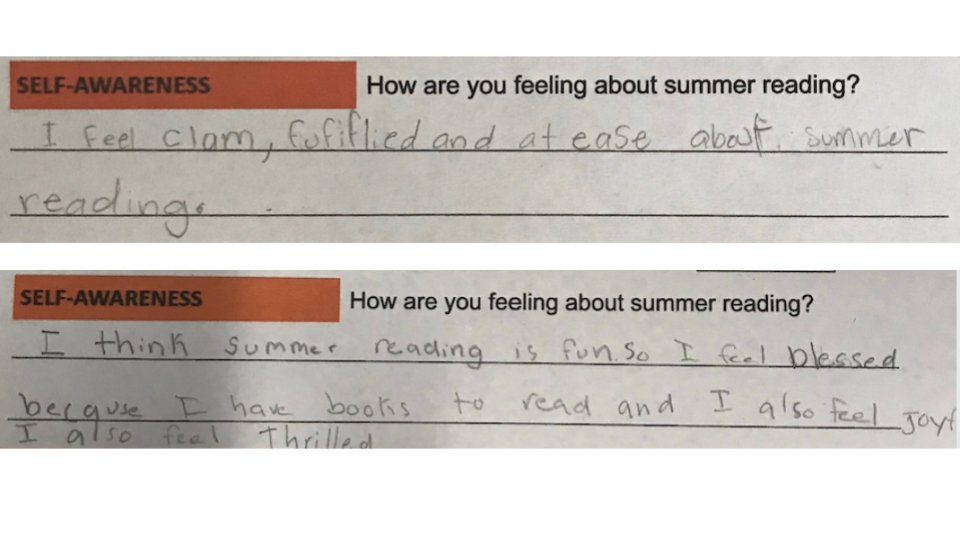 SELF-AWARENESS How are you feeling about summer reading?
I feel clam, fufiflied and at ease about summer
reading.
SELF-AWARENESS How are you feeling about summer reading?
I think summer reading is fun. So I feel blessed
becquse I have books to read and I also feel Joyf
I also feel Thrilled